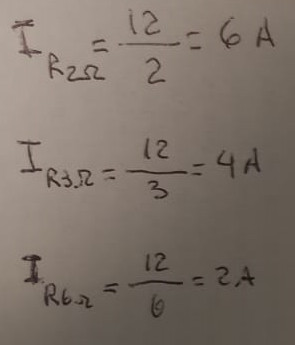 I R2Ω = 12/2 = 6 A
I R3Ω = 12/3 = 4A
I R6Ω = 12/6 = 2A